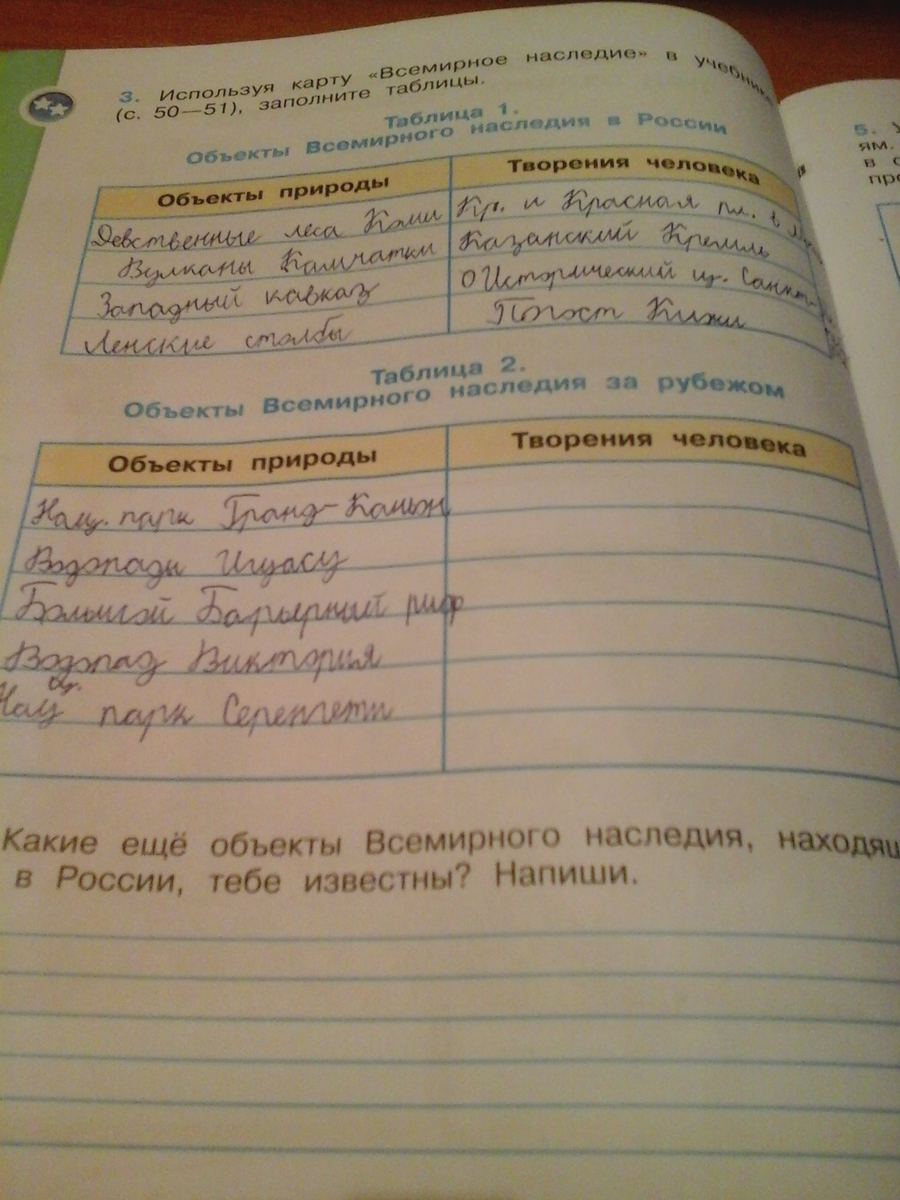 3. Используя карту «Всемирное наследие» в учебнике
(с. 50—51), заполните таблицы.
Таблица 1.
Объекты Всемирного наследия в России
Объекты природы Творения человека
Девственные леса Коми Кр. и Красная пл. в
Вулканы Камчатки Казанский Кремль
Западный кавказ Исторический ц. Санкт-
Ленские столбы Погост Кижи
Таблица 2.
Объекты Всемирного наследия за рубежом
Объекты природы Творения человека
Нац. парк Гранд-Каньон
Водопады Игуасу
Большой Барьерный риф
Водопад Виктория
Нац. парк Серенгети
Какие ещё объекты Всемирного наследия, находящ
в России, тебе известны? Напиши.
5. У
ям.
в с
про